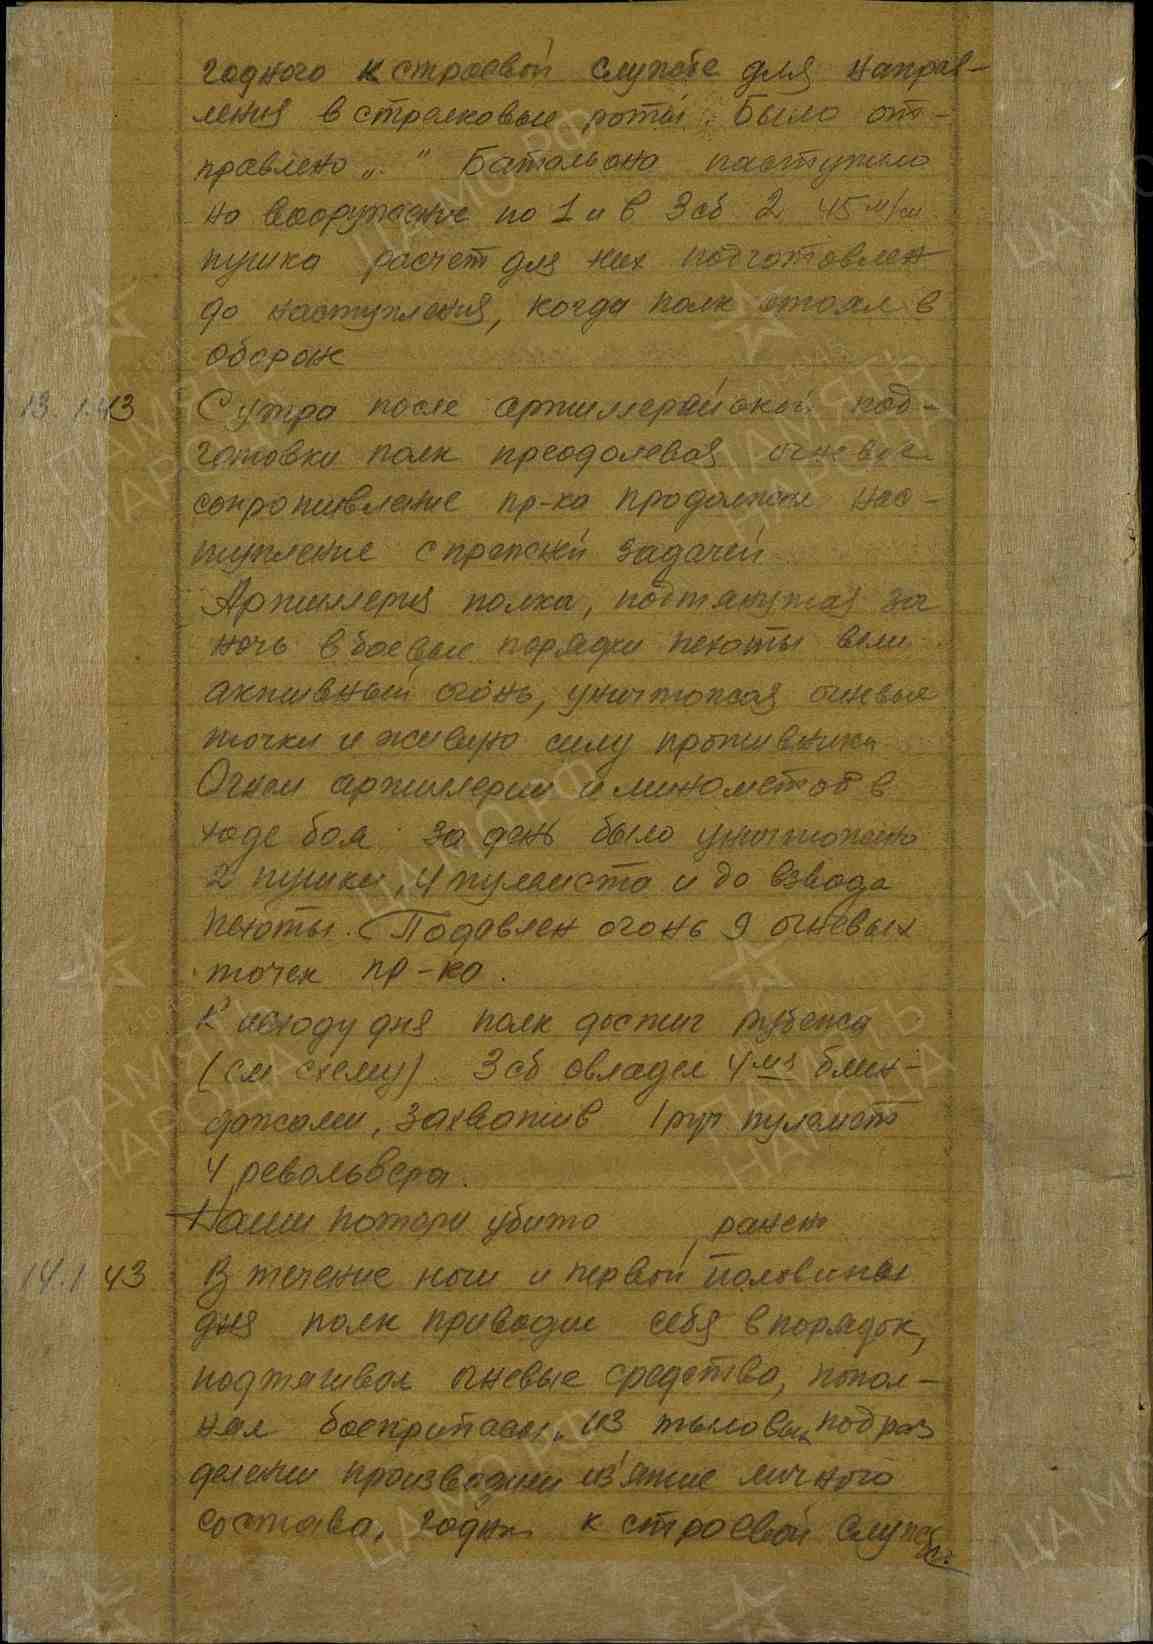 годного к строевой службе для направ-
ления в стрелковые роты. Было от-
правлено „ " Батальона поступило
на вооружение по 1 и в 3 сб 2 45 м/м
пушка расчет для них подготовлен
до наступления, когда полк стоял в
обороне
13.1.43 С утра после артиллерийской под-
готовки полк преодолевая огневое
сопротивление пр-ка продолжал нас-
тупление с прежней задачей
Артиллерия полка, подтянутая за
ночь в боевые порядки пехоты вели
активный огонь, уничтожая огневые
точки и живую силу противника
Огнем артиллерии и минометов в
ходе боя за день было уничтожено
2 пушки, 4 пулемета и до взвода
пехоты. Подавлен огонь 9 огневых
точек пр-ка.
К исходу дня полк достиг рубежа
(см схему) 3 сб овладел 4мя блин-
дажами, захватив 1 руч пулемет
4 револьвера.
Наши потери убито ранено
14.1.43 В течение ночи и первой половины
дня полк приводил себя в порядок,
подтягивал огневые средства, попол-
нял боеприпасы, из тыловых подраз
делении производили из'ятие личного
состава, годных к строевой службе
ЦАМО РФ
ПАМЯТЬ
НАРОДА